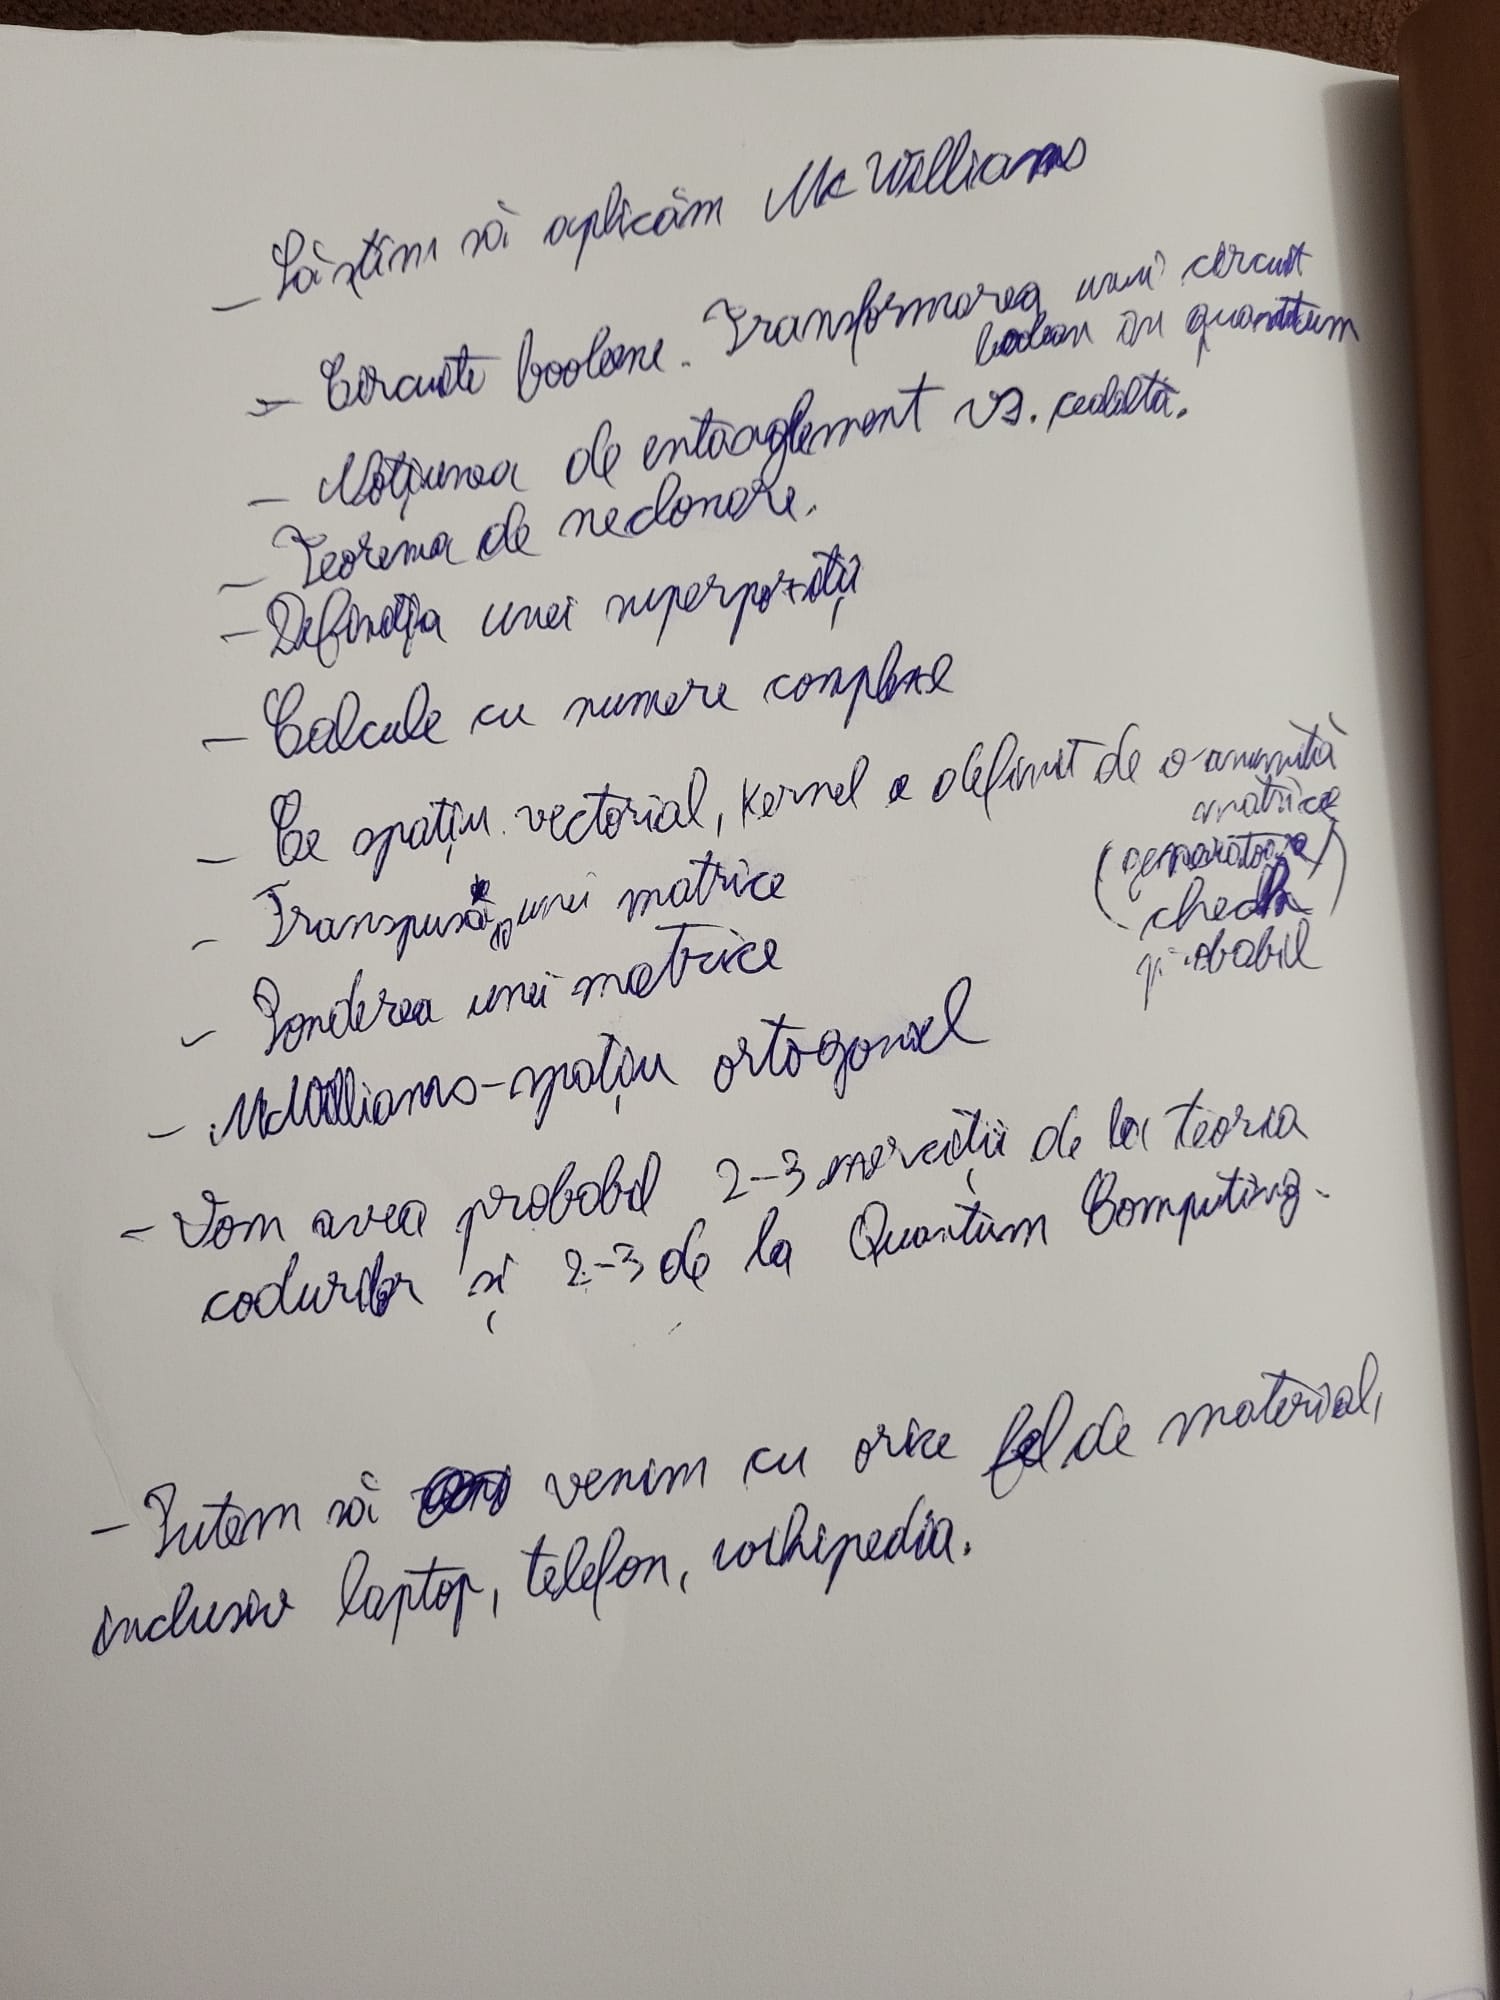 - Să știm să aplicăm McWilliams
- Circuite booleene. Transformarea unui circuit
boolean în quantum
- Noțiunea de entanglement vs.
- Teorema de neclonare.
- Definiția unei superpoziții
- Calcule cu numere complexe
- Ce spațiu vectorial, kernel e definit de o anumită
matrice
(generatoare/
check)
probabil
- Transpusa unei matrice
- Ponderea unei matrice
- McWilliams-spațiu ortogonal
- Vom avea probabil 2-3 exerciții de la teoria
codurilor și 2-3 de la Quantum Computing.
- Putem să venim cu orice fel de material,
inclusiv laptop, telefon, wikipedia.